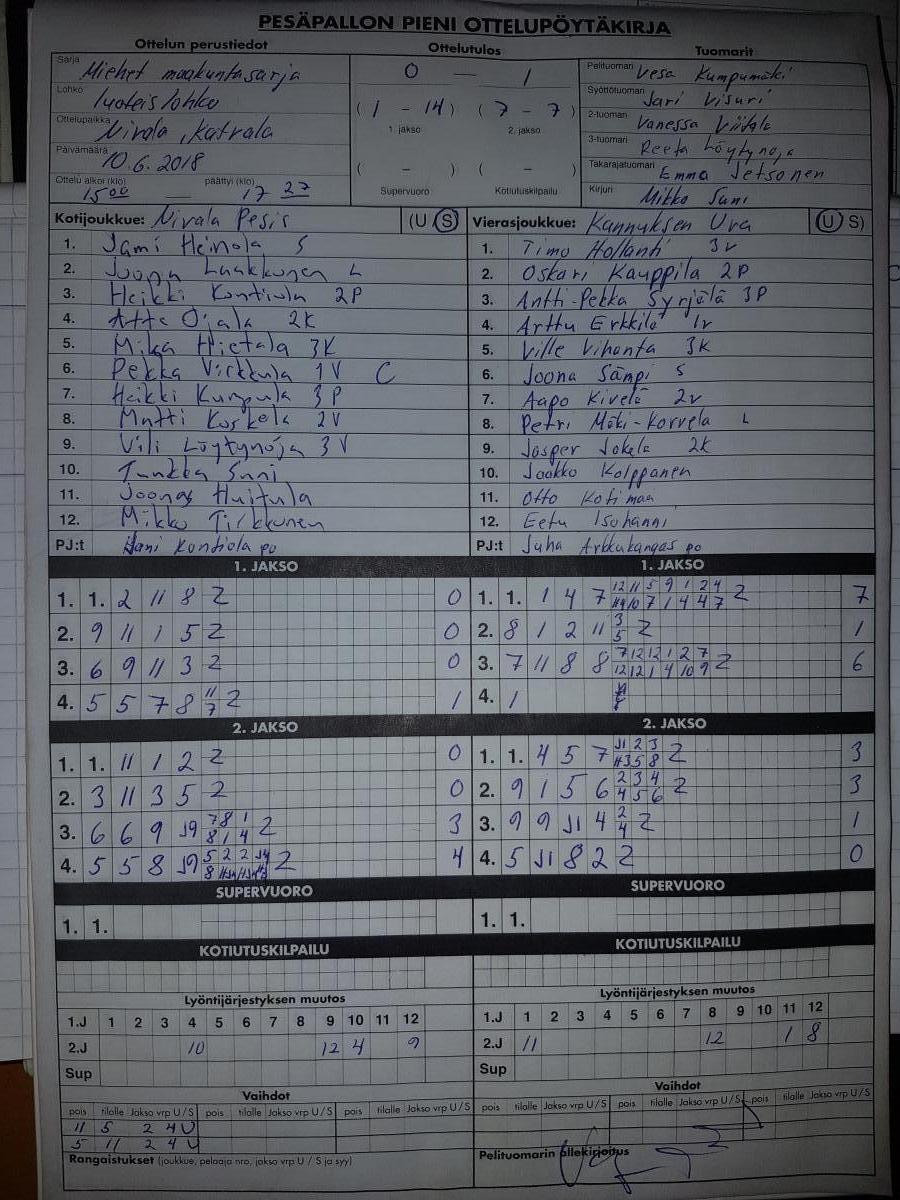 PESÄPALLON PIENI OTTELUPÖYTÄKIRJA
Ottelun perustiedot
Ottelutulos
Tuomarit
Sarja Miehet maakuntasarja
Lohko luoteislohko
Ottelupaikka Nivala, Katvala
Päivämäärä 10.6.2018
Ottelu alkoi (klo) 15 00 — päättyi (klo) 17 27
0 — 1
(1 - 14) (7 - 7)
1. jakso 2. jakso
( - ) ( - )
Supervuoro Kotiutuskilpailu
Pelituomari Vesa Kumpumäki
Syöttötuomari Jari Visuri
2-tuomari Vanessa Viitala
3-tuomari Reeta Löytynoja
Takarajatuomari Emma Jetsonen
Kirjuri Mikko Suni
Kotijoukkue: Nivala Pesis (U S)
1. Jami Heinola S
2. Joona Laakkonen L
3. Heikki Kontiola 2P
4. Atte Ojala 2K
5. Mika Hietala 3K
6. Pekka Virkkula 1V C
7. Heikki Kumpula 3P
8. Matti Koskela 2V
9. Vili Löytynoja 3V
10. Tuukka Suni
11. Joonas Huitula
12. Mikko Tirkkonen
PJ:t Hani Kontiola po
Vierasjoukkue: Kannuksen Ura (U S)
1. Timo Hollanti 3v
2. Oskari Kauppila 2P
3. Antti-Pekka Syrjälä 3P
4. Arttu Erkkilä 1v
5. Ville Vihanta 3K
6. Joona Sämpi S
7. Aapo Kivelä 2v
8. Petri Mäki-Korvela L
9. Jasper Jokela 2K
10. Jaakko Kolppanen
11. Otto Kotimaa
12. Eetu Isohanni
PJ:t Juha Arkkukangas po
1. JAKSO
1. 1. 2 11 8 2 0
2. 9 11 1 5 2 0
3. 6 9 11 3 2 0
4. 5 5 7 8 11 7 2 1
1. JAKSO
1. 1. 1 4 7 12 11 5 9 1 2 4
10 7 1 4 4 7 2 7
2. 8 1 2 11 3 5 2 1
3. 7 11 8 8 7 12 12 1 2 7
12 12 1 4 10 9 2 6
4. 1
2. JAKSO
1. 1. 11 1 2 2 0
2. 3 11 3 5 2 0
3. 6 6 9 7 8 1
8 1 4 2 3
4. 5 5 8 5 2 2
8 2 4
2. JAKSO
1. 1. 4 5 7 11 2 3
3 5 8 2 3
2. 9 1 5 6 2 3 4
4 5 6 2 3
3. 9 9 11 4 2 4 2 1
4. 5 11 8 2 2 0
SUPERVUORO
1. 1.
SUPERVUORO
1. 1.
KOTIUTUSKILPAILU
KOTIUTUSKILPAILU
Lyöntijärjestyksen muutos
1.J 1 2 3 4 5 6 7 8 9 10 11 12
2.J 10 12 4 9
Sup
Lyöntijärjestyksen muutos
1.J 1 2 3 4 5 6 7 8 9 10 11 12
2.J 11 12 1 8
Sup
Vaihdot
pois tilalle Jakso vrp U/S pois tilalle Jakso vrp U/S pois tilalle Jakso vrp U/S
11 5 2 4U
5 11 2 4U
Vaihdot
pois tilalle Jakso vrp U/S pois tilalle Jakso vrp U/S pois tilalle Jakso vrp U/S
Rangaistukset (joukkue, pelaaja nro, jakso vrp U / S ja syy)
Pelituomarin allekirjoitus